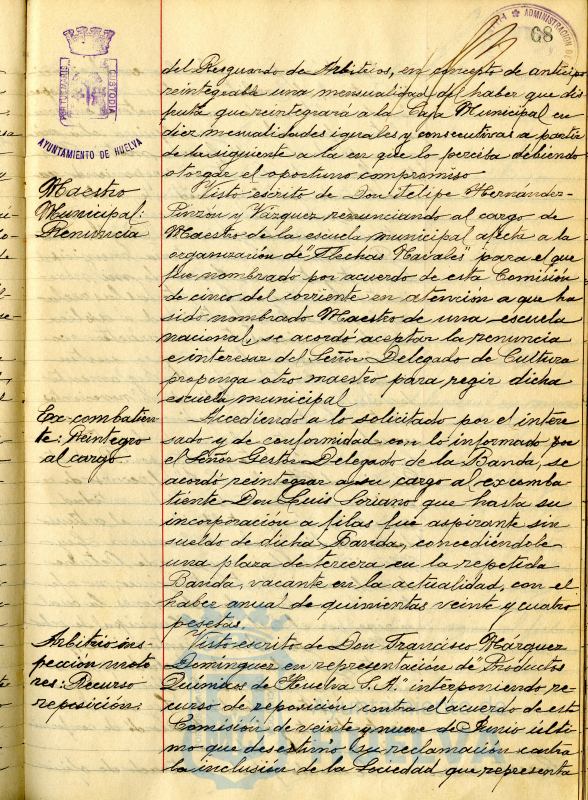 68
ADMINISTRACION D
PORTUS MARIS
CUSTODIA
AYUNTAMIENTO DE HUELVA
del Resguardo de Arbitrios, en concepto de anticipo
reintegrable una mensualidad del haber que dis-
fruta que reintegrará a la Caja Municipal en
diez mesualidades iguales y consecutivas a partir
de la siguiente a la en que lo perciba debiendo
otorgar el oportuno compromiso
Maestro
Municipal:
Renuncia
Visto escrito de Don Felipe Hernández-
Pinzón y Vázquez renunciando al cargo de
Maestro de la escuela municipal afecta a la
organización de "Flechas Navales" para el que
fue nombrado por acuerdo de esta Comisión
de cinco del corriente en atención a que ha
sido nombrado Maestro de una escuela
nacional, se acordó aceptar la renuncia
e interesar del Señor Delegado de Cultura
proponga otro maestro para regir dicha
escuela municipal
Ex-combatien-
te: Reintegro
al cargo.
Accediendo a lo solicitado por el intere-
sado y de conformidad con lo informado por
el Señor Gestor Delegado de la Banda, se
acordó reintegrar a su cargo al ex comba-
tiente Don Luis Soriano que hasta su
incorporación a filas fué aspirante sin
sueldo de dicha Banda, concediéndole
una plaza de tercera en la repetida
Banda, vacante en la actualidad, con el
haber anual de quinientas veinte y cuatro
pesetas.
Arbitrio ins-
peccion moto
res: Recurso
reposición:
Visto escrito de Don Francisco Márquez
Dominguez en representación de "Productos
Químicos de Huelva S.A." interponiendo re-
curso de reposición contra el acuerdo de esta
Comisión de veinte y nueve de Junio últi-
mo que desestimó su reclamación contra
la inclusión de la Sociedad que representa
HUELVA